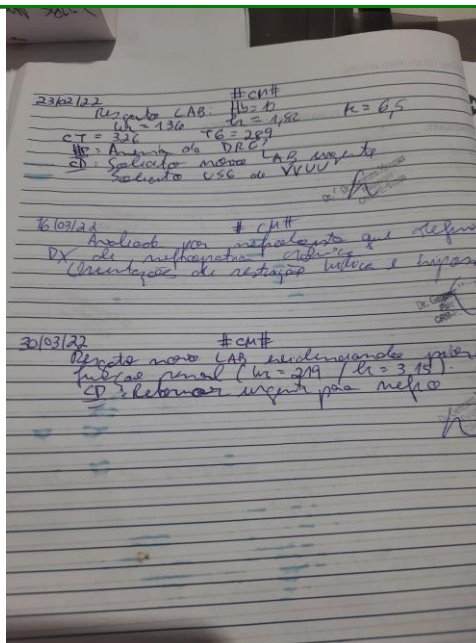 23/02/22 #CM#
Resgato LAB: Hb = 10
Ur = 136 Cr = 1,82 K = 6,5
CT = 326 TG = 289
HD: Anemia da DRC?
CD: Solicito novo LAB urgente
Solicito USG de VVUU
16/03/22 #CM#
Avaliado por nefrologista que
DX de nefropatia crônica
Orientações de restrição hídrica e
30/03/22 #CM#
Resgato novo LAB evidenciando
função renal (Ur = 219 / Cr = 3,15).
CD: Retornar urgente para nefro